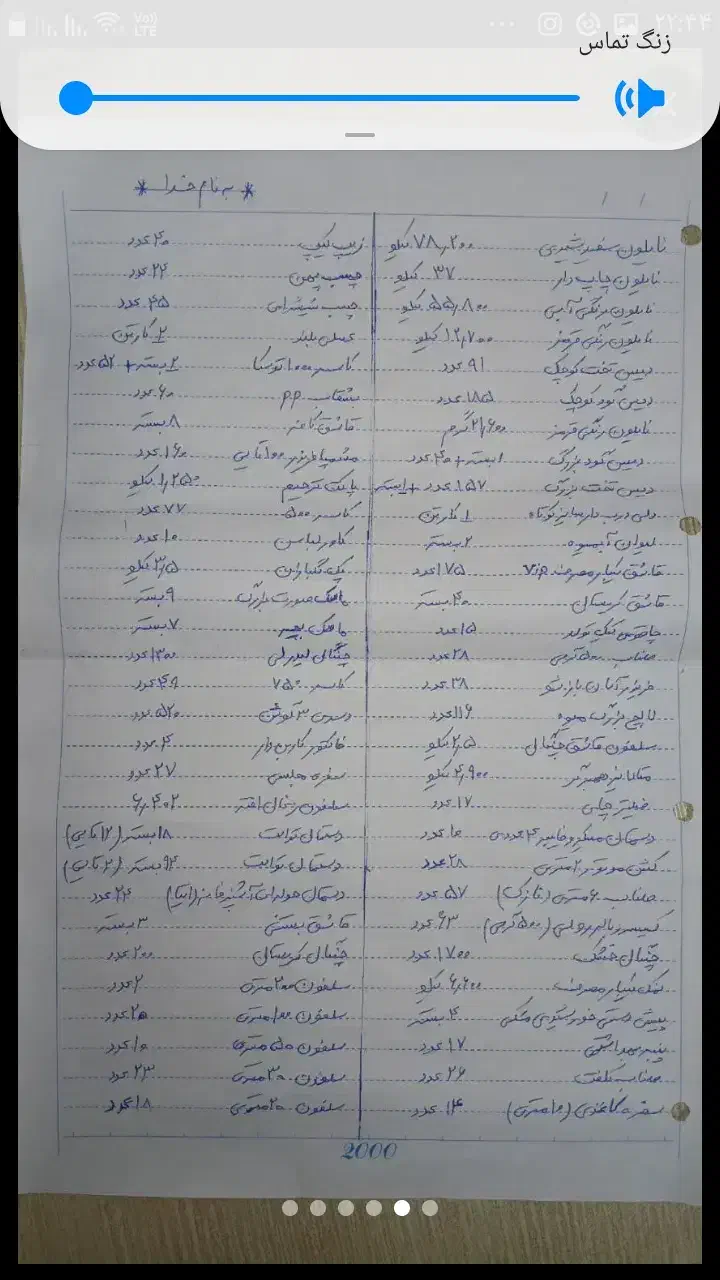 ۲۲:۴۴
Vo)) LTE
زنگ تماس
* به نام خدا *
نایلون سفید شیری ۷۸٫۲۰۰ کیلو
نایلون چاپ دار ۳۷ کیلو
نایلون رنگی آبی ۵۵٫۸۰۰ کیلو
نایلون رنگی قرمز ۱۲٫۷۰۰ کیلو
دیس تخت کوچک ۹۱ عدد
دیس گود کوچک ۱۸۵ عدد
نایلون رنگی قرمز ۲۱٫۶۰۰ گرم
دیس گود بزرگ ۱ بسته + ۴۰ عدد
دیس تخت بزرگ ۱۵۷ عدد + ۱ بسته
درب دار سایز کوتاه ۱ کارتن
لیوان آبمیوه ۲ بسته
قاشق یکبار مصرف VIP ۱۷۵ عدد
قاشق کریستال ۴۰ بسته
چاقوی کیک تولد ۱۵ عدد
طناب ۵۰۰ گرمی ۲۸ عدد
فریزر آسان بازشو ۳۸ عدد
بزرگ میوه ۱۱۶ عدد
سلفون قاشق چنگال ۲٫۵ کیلو
همبرگر ۴٫۹۰۰ کیلو
فیلتر چای ۱۷ عدد
دستمال میکروفایبر ۴ عددی ۱۰ عدد
کش مو تور ۲ متری ۲۸ عدد
طناب ۶۰ متری (نازک) ۵۷ عدد
کیسه زباله رولی (۵۰۰ گرمی) ۶۳ عدد
چنگال خشک ۱۷۰۰ عدد
نمک یکبار مصرف ۶٫۶۰۰ کیلو
پیش دستی خورشیدی مشکی ۴ بسته
پنبه بهداشتی ۱۷ عدد
طناب کلفت ۲۶ عدد
سفره کاغذی (۱۰ متری) ۱۴ عدد
زیپ کیپ ۴۰ عدد
چسب پهن ۲۴ عدد
چسب شیشه‌ای ۴۵ عدد
عسلی بلند ۲ کارتن
کاسه ۱۰۰۰ توسکا ۲ بسته + ۵۲ عدد
بشقاب PP ۶۰ عدد
قاشق کاغذ ۸ بسته
مشما فریزر ۱۰۰ تایی ۱۶۰ عدد
پاکت ترحیم ۱٫۲۵۰ کیلو
کاسه ۵۰۰ ۷۷ عدد
کاور لباس ۱۰ عدد
پک گلباران ۳٫۵ کیلو
ماسک صورت بزرگ ۹ بسته
ماسک بچه ۷ بسته
چنگال لیدرلی ۱۳۰۰ عدد
کاسه ۷۵۰ ۴۹ عدد
دیس ۳ گوش ۵۲۰ عدد
فاکتور کاربن دار ۴ عدد
سفره مجلسی ۲۷ عدد
سلفون زغال اخته ۶٫۴۰۲
دستمال توالت ۱۸ بسته (۱۲ تایی)
دستمال توالت ۹۴ بسته (۲ تایی)
دستمال حوله‌ای آشپزخانه (آتیا) ۲۴ عدد
قاشق بستنی ۳ بسته
چنگال کریستال ۲۰۰ عدد
سلفون ۲۰۰ متری ۲ عدد
سلفون ۱۰۰ متری ۲۵ عدد
سلفون ۵۰ متری ۱۰ عدد
سلفون ۳۰ متری ۲۳ عدد
سلفون ۲۰ متری ۱۸ عدد
2000